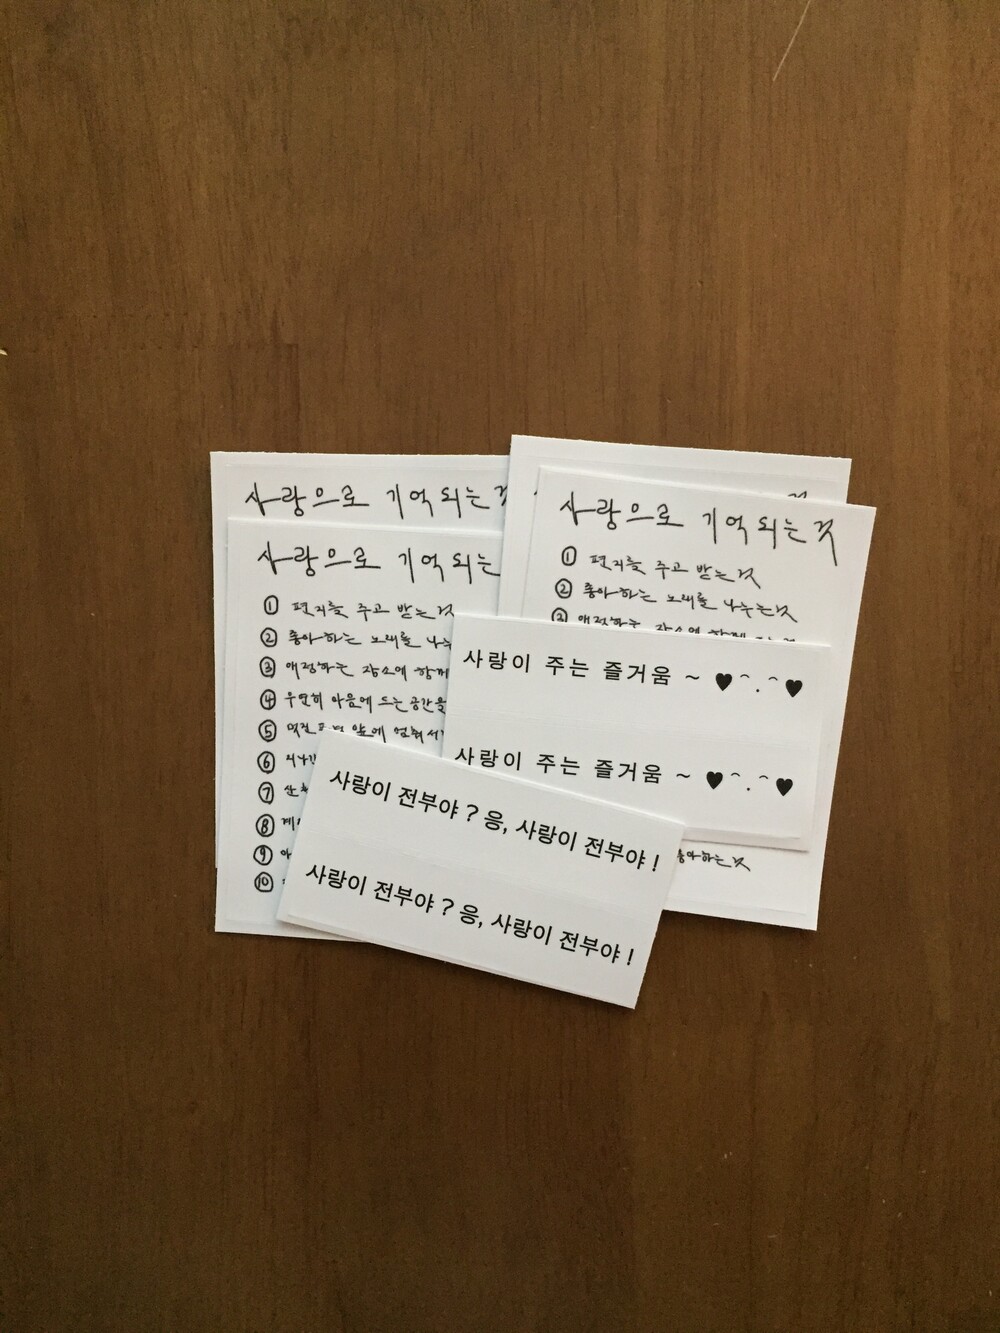 사랑으로 기억되는
사랑으로 기억되는
① 편지를 주고 받는 것
② 좋아하는 노래를 나누
③ 애정하는 장소에 함께
④ 우연히 마음에 드는 공간을
⑤ 멋진 앞에 멈춰서
⑥
⑦
⑧
⑨
⑩
것
사랑으로 기억되는 것
① 편지를 주고 받는 것
② 좋아하는 노래를 나누는 것
③ 애정하는 장소에 함께
좋아하는 것
사랑이 주는 즐거움 ~ ♥ᵔ.ᵔ♥
사랑이 주는 즐거움 ~ ♥ᵔ.ᵔ♥
사랑이 전부야 ? 응, 사랑이 전부야 !
사랑이 전부야 ? 응, 사랑이 전부야 !